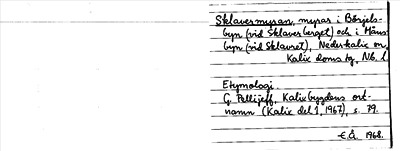 Sklavermyran, myrar i Börjels-
byn (vid Sklaverberget) och i Månsbyn
(vid Sklavret), Nederkalix sn,
Kalix doms tg, Nb. l.
Etymologi:
G. Pellijeff, Kalixbygdens ort-
namn (Kalix del 1, 1967), s. 79.
E.Å. 1968.